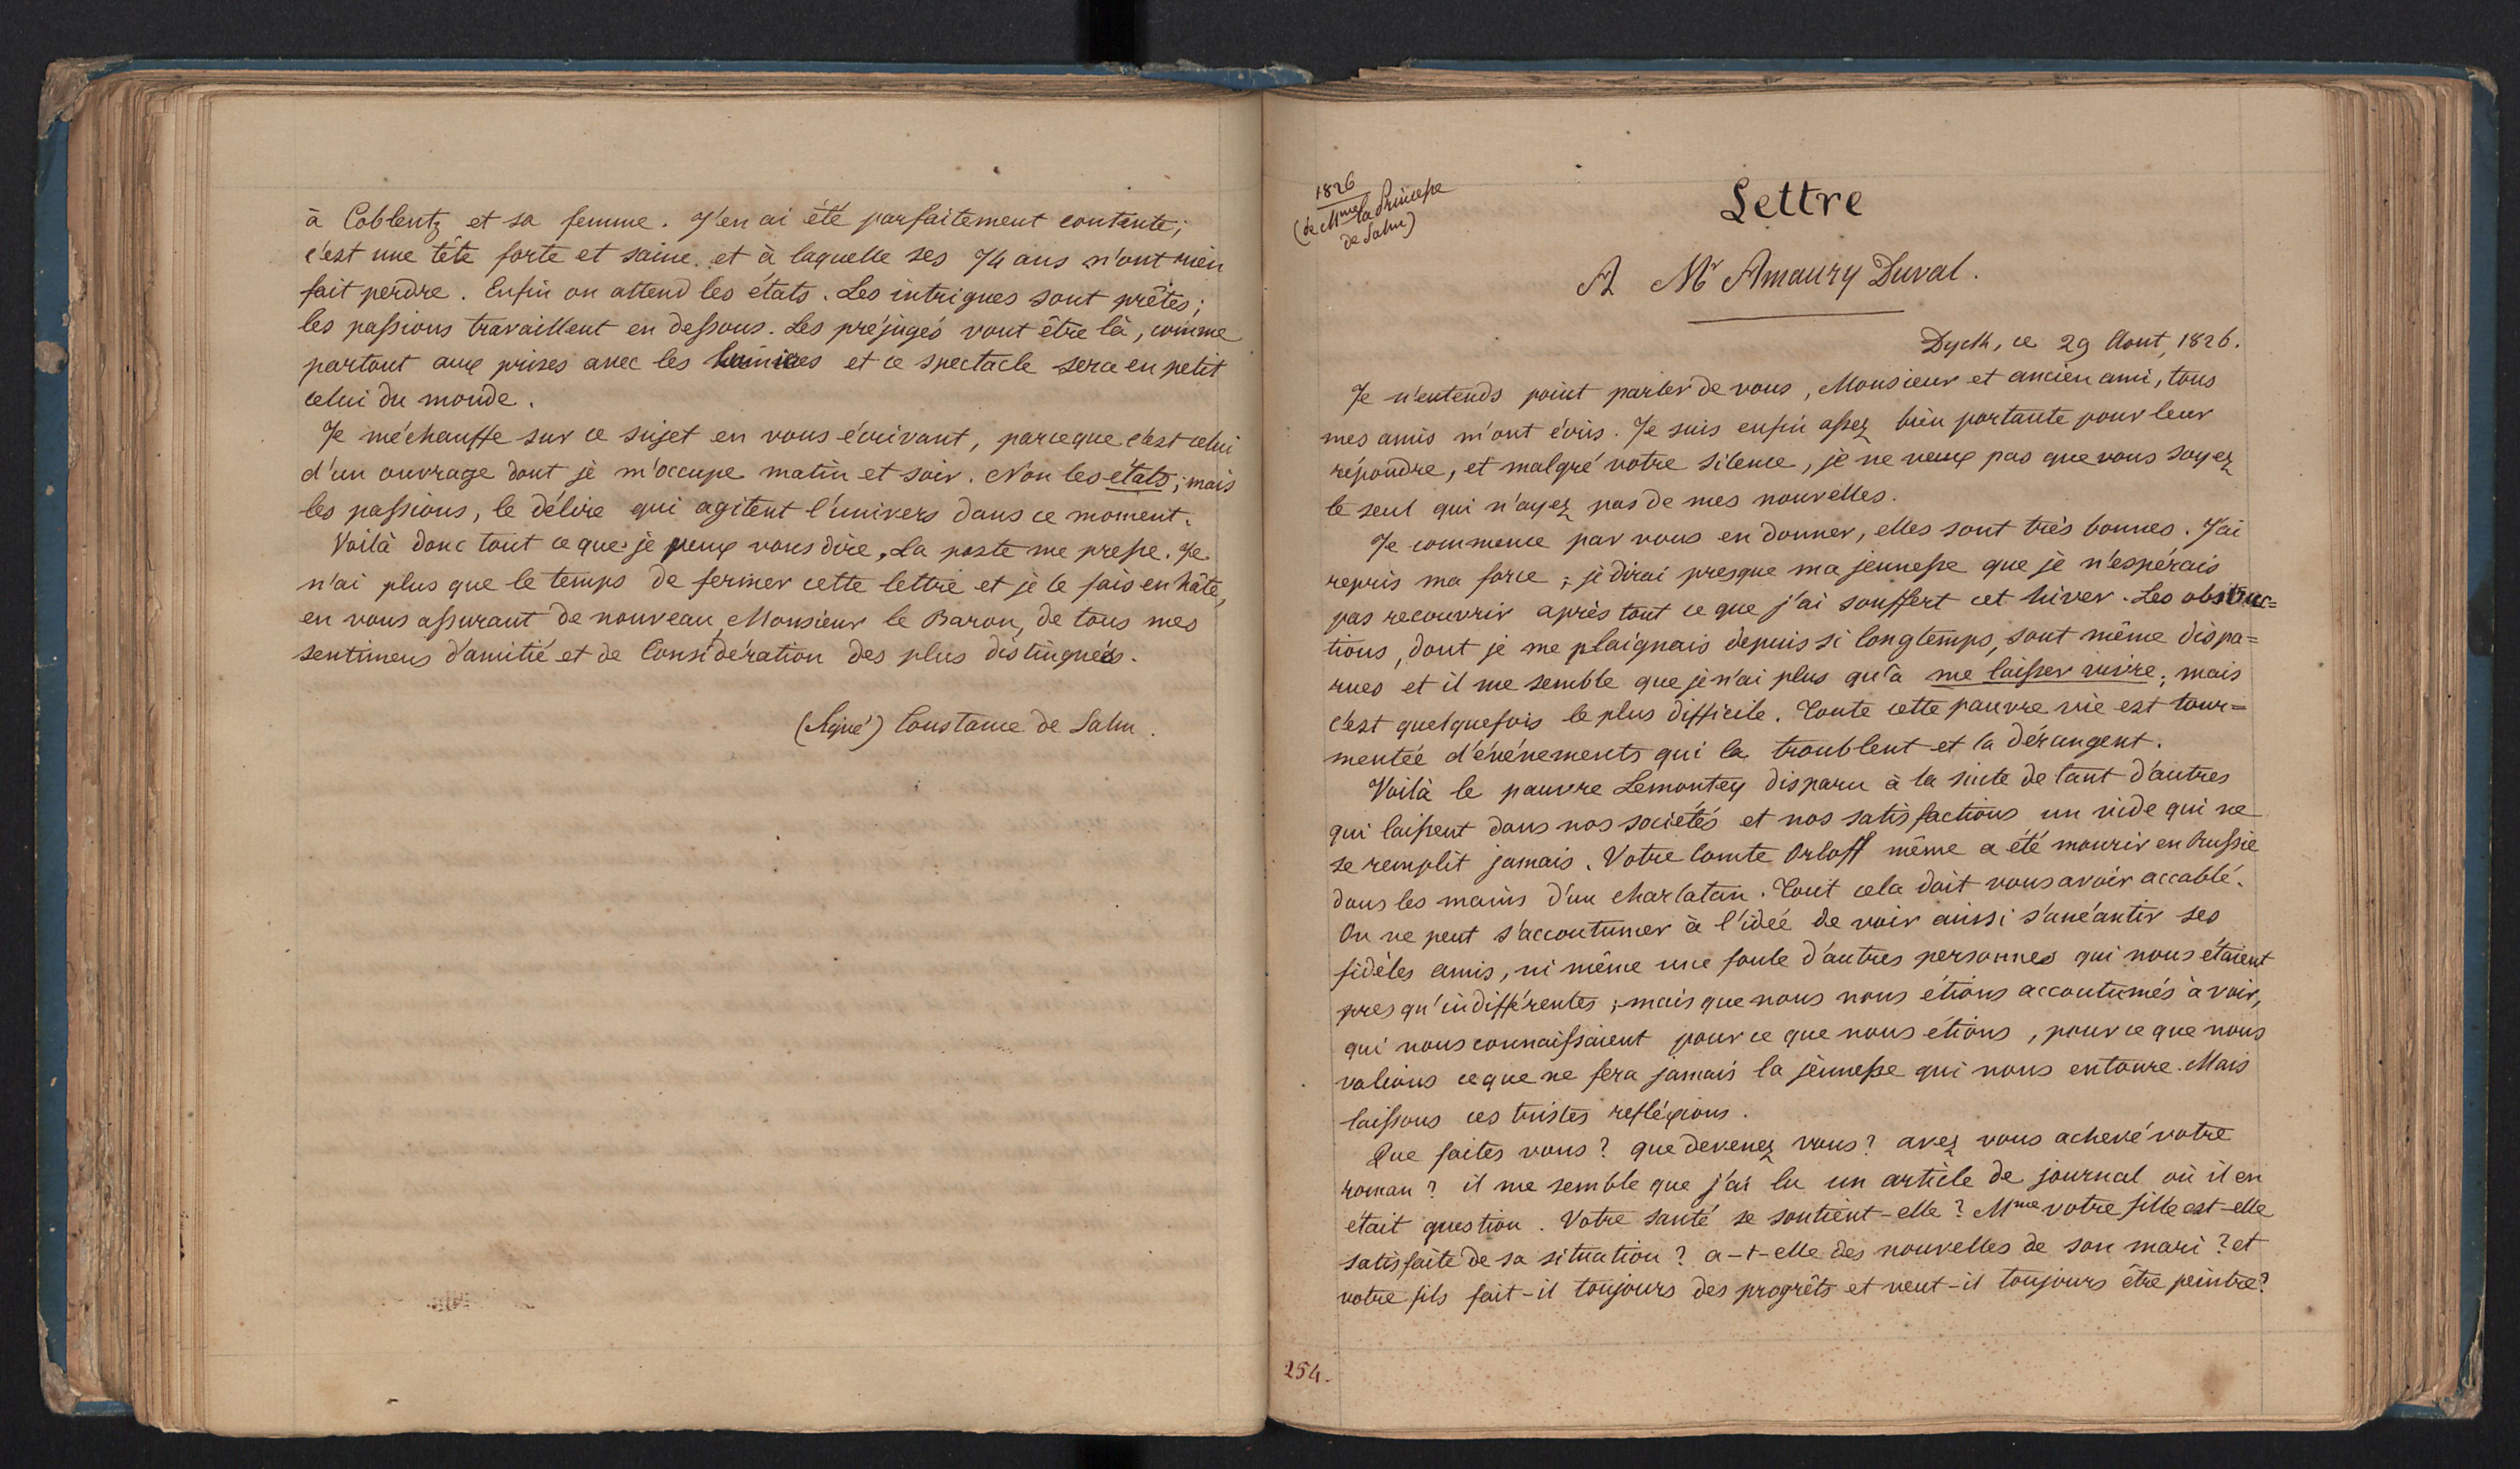 à Coblentz et sa femme. J'en ai été parfaitement contente;
c'est une tête forte et saine et à laquelle ses 74 ans n'ont rien
fait perdre. Enfin on attend les états. Les intrigues sont prêtes;
les passions travaillent en dessous. Les préjugés vont être là, comme
partout aux prises avec les lumières et ce spectacle sera en petit
celui du monde.
Je m'échauffe sur ce sujet en vous écrivant, parceque c'est celui
d'un ouvrage dont je m'occupe matin et soir. Non les états; mais
les passions, le délire qui agitent l'univers dans ce moment.
Voilà donc tout ce que je peux vous dire. La poste me presse. Je
n'ai plus que le temps de fermer cette lettre et je le fais en hâte,
en vous assurant de nouveau, Monsieur le Baron, de tous mes
sentimens d'amitié et de Considération des plus distingués.
(Signé) Constance de Salm.
1826
(de Mme la Princesse
de Salm)
Lettre
A Mr Amaury Duval.
Dyck, ce 29 Aout, 1826.
Je n'entends point parler de vous, Monsieur et ancien ami, tous
mes amis m'ont écris. Je suis enfin assez bien portante pour leur
répondre, et malgré votre silence, je ne veux pas que vous soyez
le seul qui n'ayez pas de mes nouvelles.
Je commence par vous en donner, elles sont très bonnes. J'ai
repris ma force; je dirai presque ma jeunesse que je n'espérais
pas recouvrir après tout ce que j'ai souffert cet hiver. Les obstruc=
tions, dont je me plaignais depuis si longtemps, sont même dispa=
rues et il me semble que je n'ai plus qu'à me laisser vivre; mais
c'est quelquefois le plus difficile. Toute cette pauvre vie est tour=
mentée d'événements qui la troublent et la dérangent.
Voilà le pauvre Lemontey disparu à la suite de tant d'autres
qui laissent dans nos sociétés et nos satisfactions un vide qui ne
se remplit jamais. Votre Comte Orloff même a été mourir en Russie
dans les mains d'un charlatan. Tout cela doit vous avoir accablé.
On ne peut s'accoutumer à l'idée de voir ainsi s'anéantir ses
fidèles amis, ni même une foule d'autres personnes qui nous étaient
presqu'indifférentes; mais que nous nous étions accoutumés à voir,
qui nous connaissaient pour ce que nous étions, pour ce que nous
valions ce que ne fera jamais la jeunesse qui nous entoure. Mais
laissons ces tristes refléxions.
Que faites vous? que devenez vous? avez vous achevé votre
roman? il me semble que j'ai lu un article de journal où il en
était question. Votre santé se soutient-elle? Mme votre fille est-elle
satisfaite de sa situation? a-t-elle des nouvelles de son mari? et
votre fils fait-il toujours des progrêts et veut-il toujours être peintre?
254.